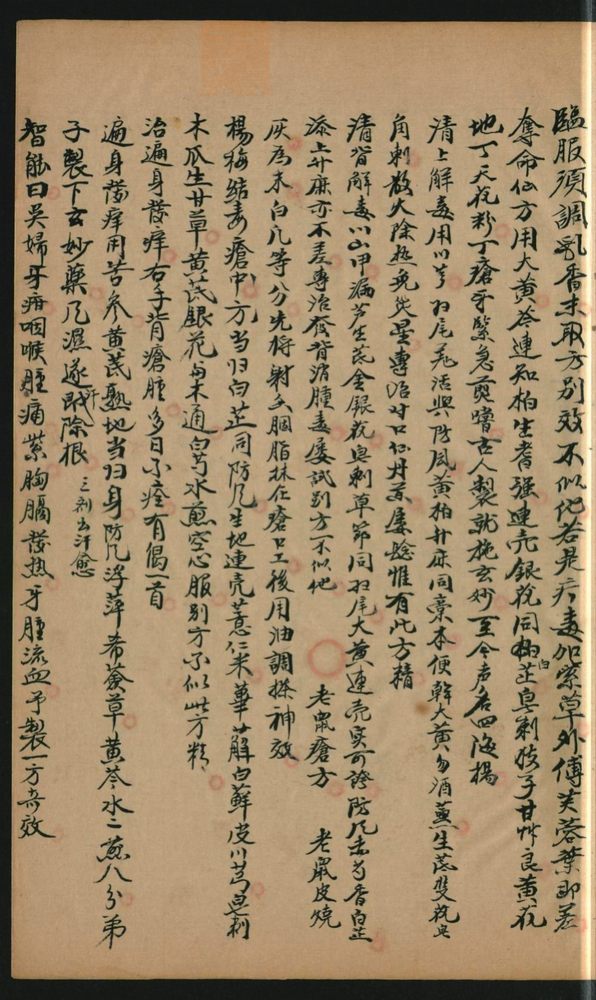 臨服須調乳香末取方別效不似他若是疔毒加紫草外傅芙蓉葉即差
奪命仙方用大黃芩連知柏生耆強連壳銀花同梔白芷皂刺枝子甘艸良黃花
地丁天花粉丁瘡牙緊急煎嚐古人製就施玄妙至今声名四海揚
清上解毒用川芎歸尾羌活與防風黃柏升麻同藁本便幹大黃勿酒蒸生芪雙花皂
角刺散火除熱免災星專治対口仙丹葯屢驗惟有此方精
清背解毒川山甲漏芦生芪金銀花皂刺草節同歸尾大黃連壳实可誇防风赤芍香白芷
添上升麻亦不差專治發背消腫毒屢試別方不似他
灰為末白凡等分先將射香胭脂抹在瘡口上後用油調搽神效　老鼠瘡方　老鼠皮燒
楊梅結毒瘡中方当归白芷同防风生地連壳薏仁米萆薢白蘚皮川芎皂刺
木瓜生甘草黃芪銀花与木通白芍水煎空心服別方不似此方精
治遍身發痒右手背瘡腫多日不痊有偈一首
遍身發痒用苦參黃芪熟地当归身防风浮萍希薟草黃芩水二煎八分弟
子製下玄妙藥风濕逐汗即除根　三剂出汗愈
智能曰吳婦牙疳咽喉腫痛紫胸膈發热牙腫流血予製一方奇效